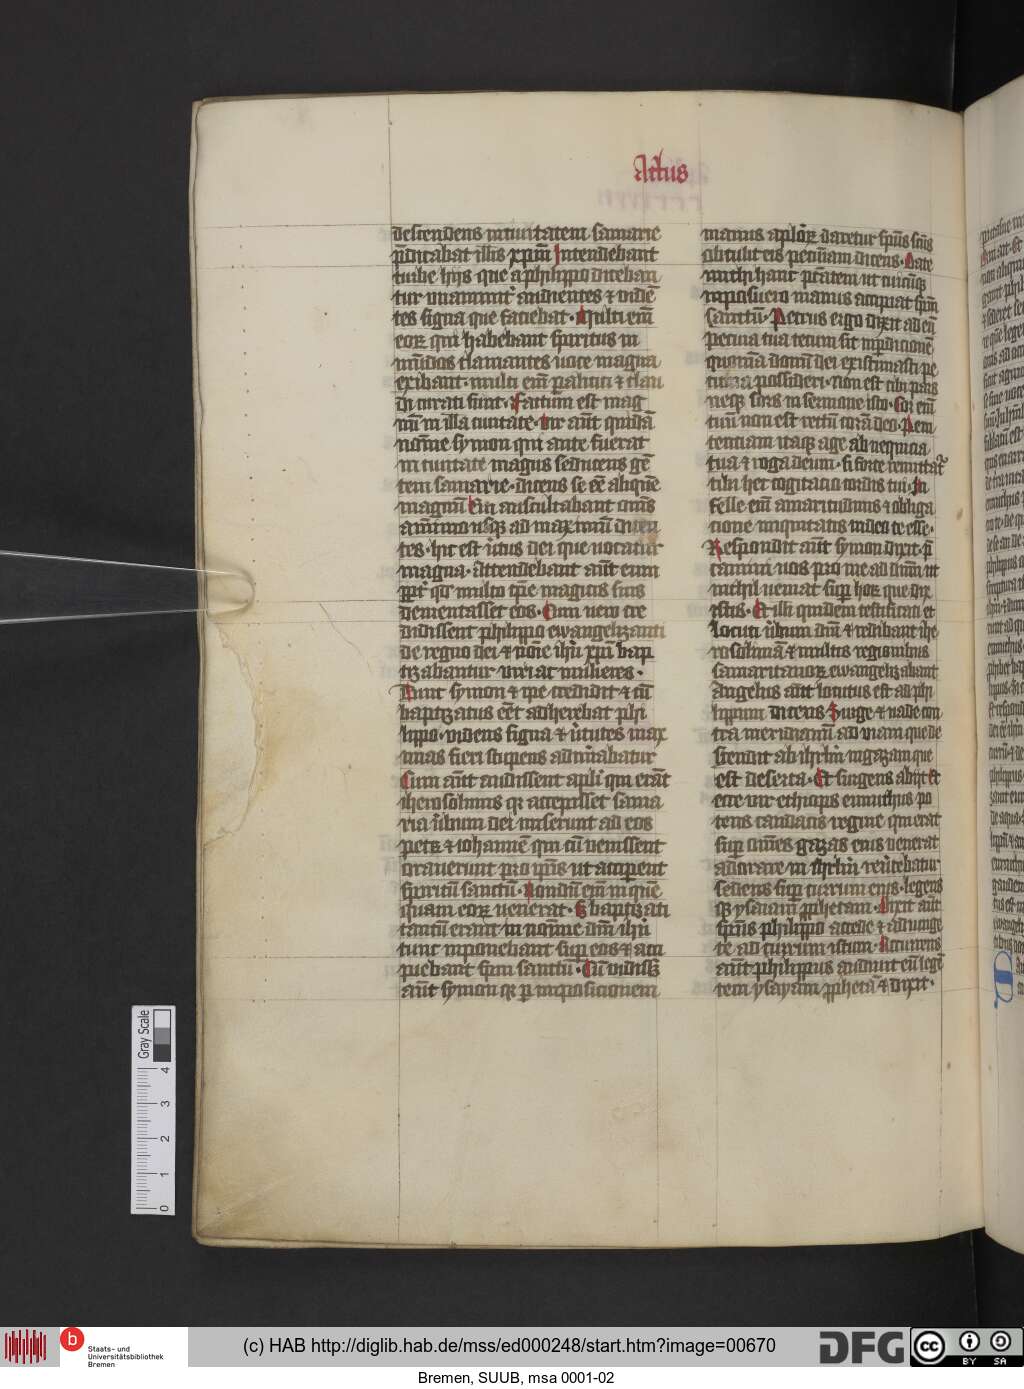 Actus
descendens in ciuitatem samarie
p̄dicabat illis xp̄m Intendebant
turbe hijs que a philippo diceban
tur unanimit᷑ audientes ⁊ vidē
tes signa que faciebat · Multi em̄
eoꝝ qui habebant spiritus in
mūdos clamantes uoce magna
exibant · multi em̄ palitici ⁊ clau
di curati sunt · Factum est mag
nū in illa ciuitate · Vir aut̄ quidā
noīne symon qui ante fuerat
in ciuitate magus seducens gē
tem samarie · dicens se eē aliquē
magnū Cui auscultabant oms̄
a minimo usqꝫ ad maximū dicen
tes · hic est uͥtus dei que uocatur
magna · Attendebant aut̄ eum
ppt᷑ qd̛ multo tp̄e magicis suis
dementasset eos · Cum uero cre
didissent philippo ewangelizanti
de regno dei ⁊ noīe ih̄u xp̄i bap
tizabantur viri ac mulieres ·
Tunc symon ⁊ ip̄e credidit ⁊ cū
baptizatus eēt adherebat phi
lippo · videns signa ⁊ uͥtutes max
imas fieri stupens admirabatur
Cum aut̄ audissent apli̅ qui erāt
iherosolimis qꝛ accepisset sama
ria uͥbum dei miserunt ad eos
petꝝ ⁊ iohannē qui cū uenissent
orauerunt pro ip̄is ut acciperent
spiritū sanctū · Nondū em̄ in quē
quam eoꝝ uenerat · sꝫ baptizati
tantū erant in noīne dn̄i ih̄u
tunc inponebant suꝑ eos ⁊ acci
piebant sp̄m sanctū · Cū vidissꝫ
aut̄ symon qꝛ ꝑ imposicionem
manus aplōꝝ daretur sp̄us scūs
obtulit eis pecuniam dicens · Date
michi hanc ptātem ut cuicūqꝫ
imposuero manus accipiat sp̄m
sanctū · Petrus ergo dixit ad eū
Pecunia tua tecum sit in ꝑdicionē
quoniā donū dei existimasti pe
cunia possideri · non est tibi pars
neqꝫ sors in sermone isto · Cor em̄
tuū non est rectū corā deo · Peni
tentiam itaqꝫ age ab nequicia
tua ⁊ roga deum · si forte remittat᷑
tibi hec cogitacio cordis tui · In
felle em̄ amaritudinis ⁊ obliga
cione iniquitatis uideo te esse ·
Respondit aut̄ symon dixit · p̄
camini uos pro me ad dn̄m ut
nichil ueniat suꝑ hoꝝ que dix
istis · Et illi quidem testificati et
locuti uͥbum dn̄i ⁊ redibant ihe
rosolimā ⁊ multis regionibus
samaritanoꝝ ewangelizabant
Angelus aut̄ locutus est ad phi
lippum dicens Surge ⁊ uade con
tra meridianū ad viam que de
scendit ab ihrl̄m in gazam que
est deserta · Et surgens abijt Et
ecce vir ethiops eunuchus po
tens candacis regine qui erat
suꝑ om̄es gazas eius uenerat
adorare in ihrl̄m reuͥtebatur
sedens suꝑ currum eius · legens
qꝫ ysaiam ꝓphetam · Dixit aut̄
sp̄us philippo accede ⁊ adiunge
te ad currum istum · Accurrens
aut̄ philippus audiuit eū legē
tem ysayam ꝓphetā ⁊ dixit ·
Gray Scale
4
3
2
1
0
b
Staats- und
Universitätsbibliothek
Bremen
(c) HAB http://diglib.hab.de/mss/ed000248/start.htm?image=00670
DFG
cc
BY SA
Bremen, SUUB, msa 0001-02